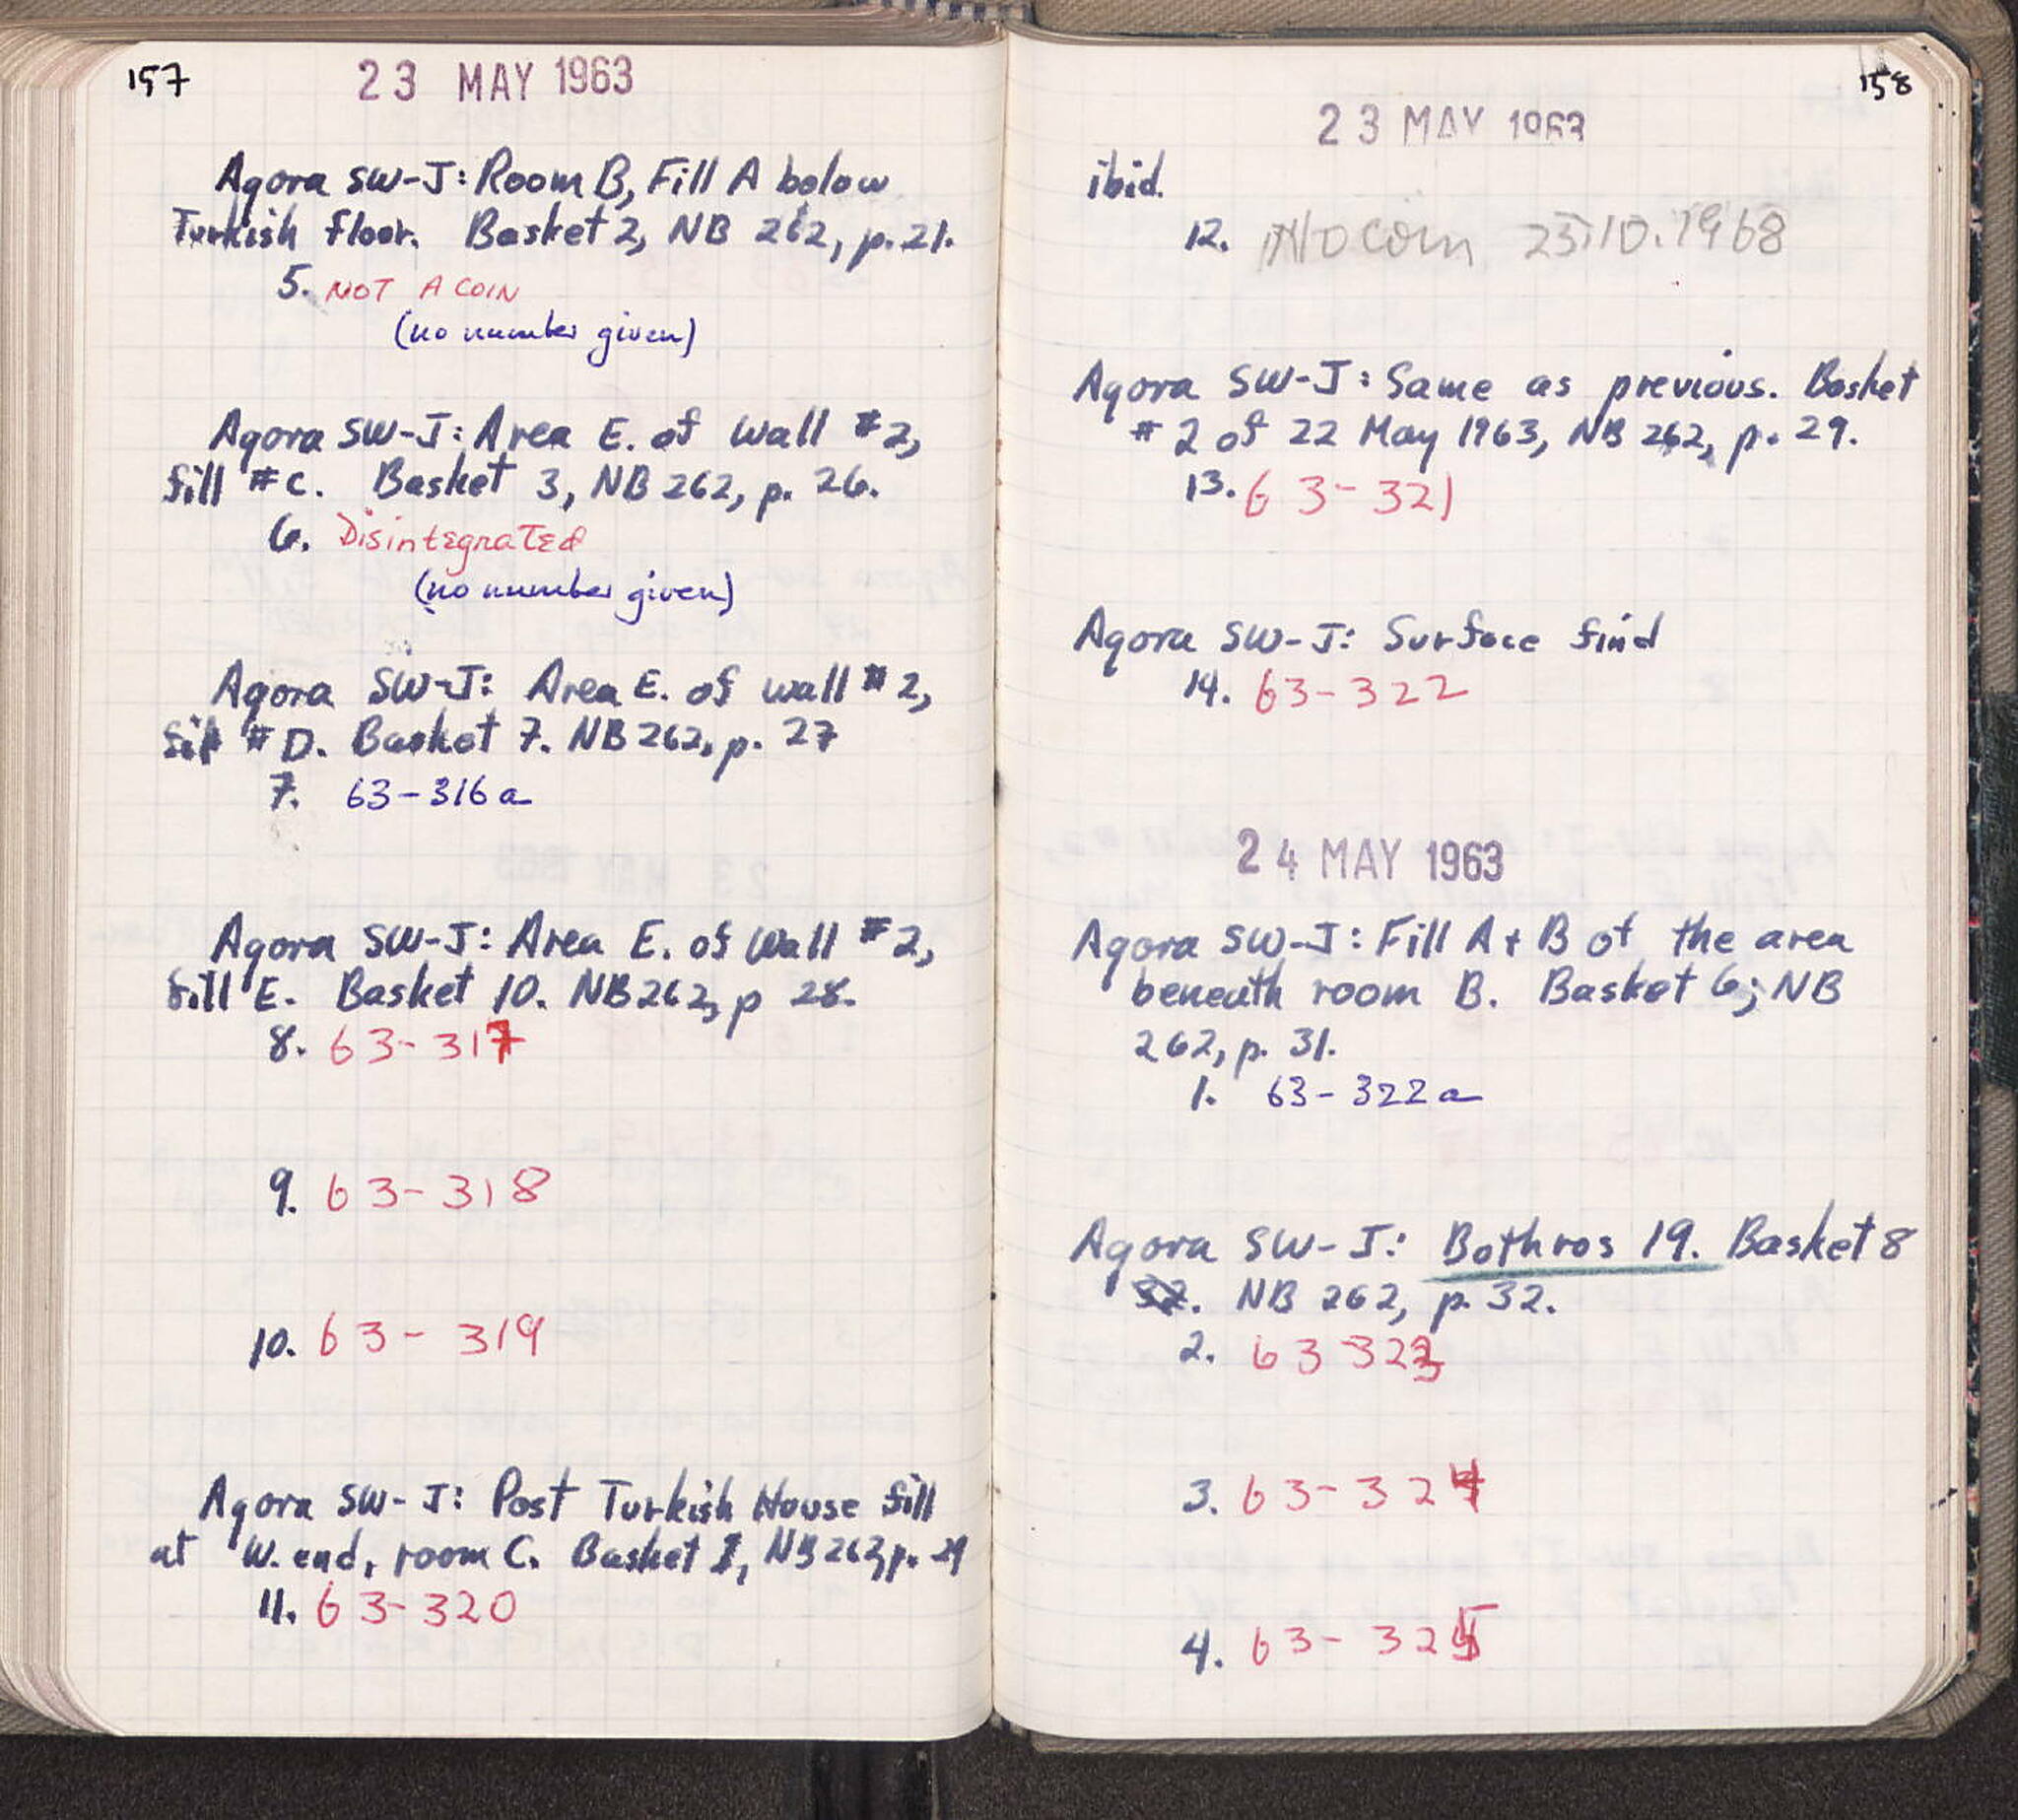 157
23 MAY 1963
Agora SW-J: Room B, Fill A below
Turkish floor. Basket 2, NB 262, p. 21.
5. NOT A COIN
(no number given)
Agora SW-J: Area E. of Wall #2,
fill #C. Basket 3, NB 262, p. 26.
6. Disintegrated
(no number given)
Agora SW-J: Area E. of wall #2,
fill #D. Basket 7. NB 262, p. 27
7. 63-316a
Agora SW-J: Area E. of Wall #2,
fill E. Basket 10. NB 262, p 28.
8. 63-317
9. 63-318
10. 63-319
Agora SW-J: Post Turkish House fill
at W. end, room C. Basket 1, NB 262, p. 29
11. 63-320
158
23 MAY 1963
ibid.
12. No coin 25.10.1968
Agora SW-J: Same as previous. Basket
#2 of 22 May 1963, NB 262, p. 29.
13. 63-321
Agora SW-J: Surface find
14. 63-322
24 MAY 1963
Agora SW-J: Fill A + B of the area
beneath room B. Basket 6; NB
262, p. 31.
1. 63-322a
Agora SW-J: Bothros 19. Basket 8
NB 262, p. 32.
2. 63 323
3. 63-324
4. 63-325